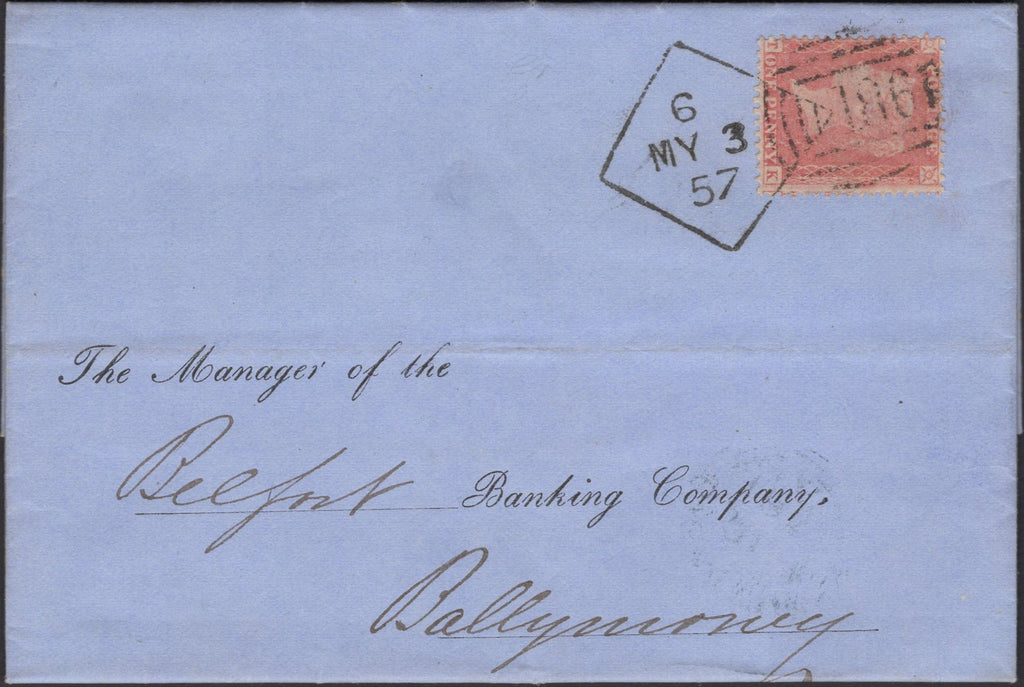 6
MY 3
57
ONE PENNY
K
The Manager of the
Belfast Banking Company,
Ballymoney